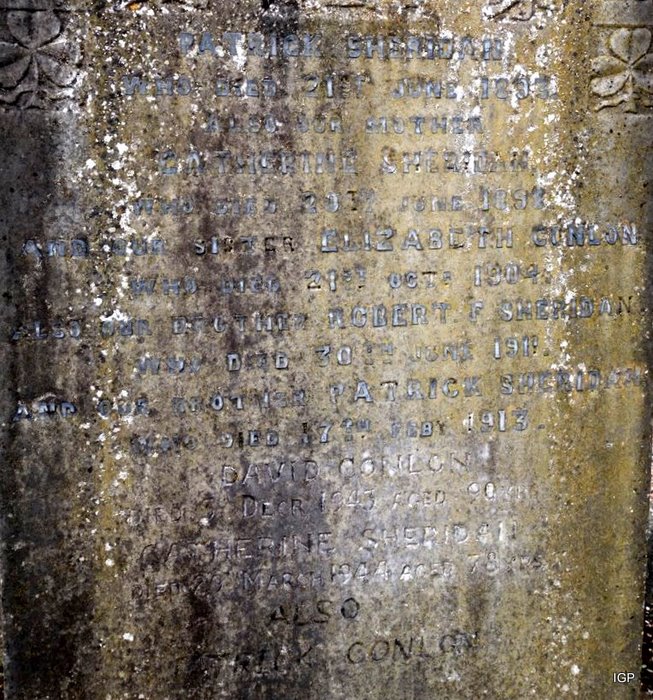 PATRICK SHERIDAN
WHO DIED 21ST JUNE
ALSO OUR MOTHER
CATHERINE SHERIDAN
WHO DIED 29TH JUNE
AND OUR SISTER ELIZABETH CONLON
WHO DIED 21ST OCTR 1904.
ALSO OUR BROTHER ROBERT F SHERIDAN
WHO DIED 30TH JUNE 1911.
AND OUR BROTHER PATRICK SHERIDAN
WHO DIED 17TH FEBY 1913.
DAVID CONLON
DIED DECR 1943 AGED 90 YRS
CATHERINE SHERIDAN
DIED MARCH 1944 AGED 78 YRS
ALSO
PATRICK CONLON
IGP